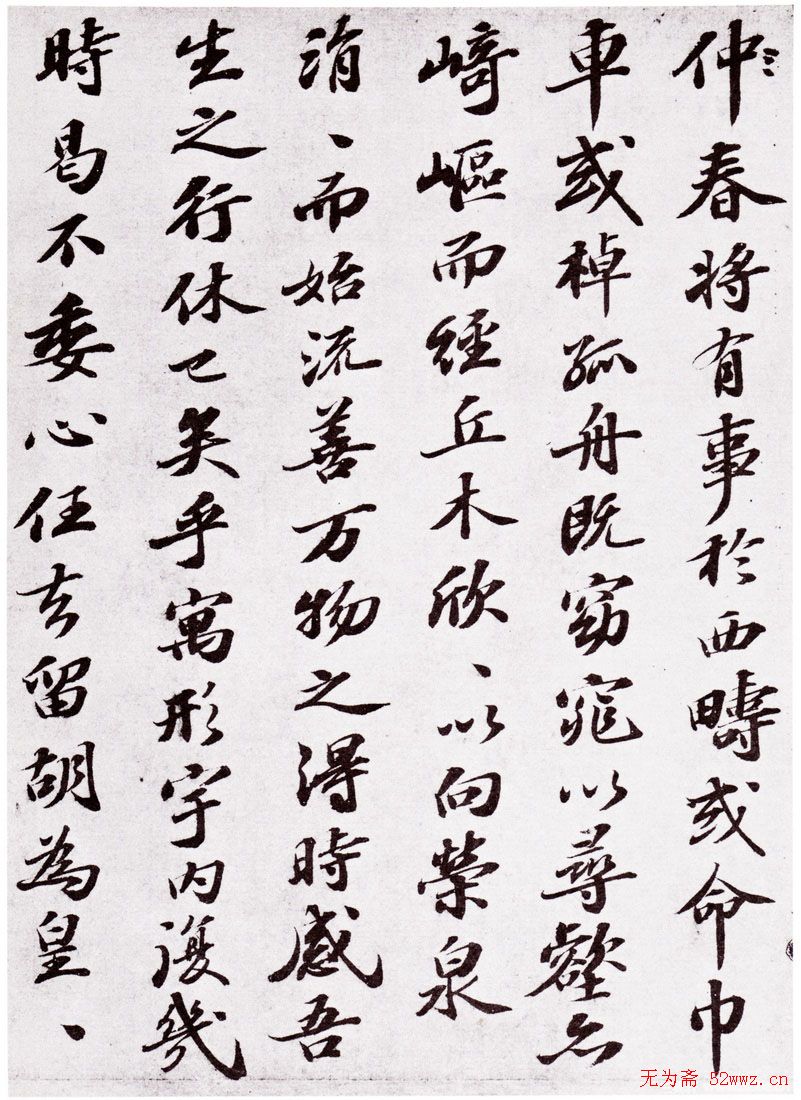 仲春将有事於西疇或命巾
車或棹孤舟既窈窕以尋壑亦
崎嶇而經丘木欣、以向榮泉
涓、而始流善万物之得時感吾
生之行休已矣乎寓形宇内復幾
時曷不委心任去留胡為皇、
无为斋 52wwz.cn